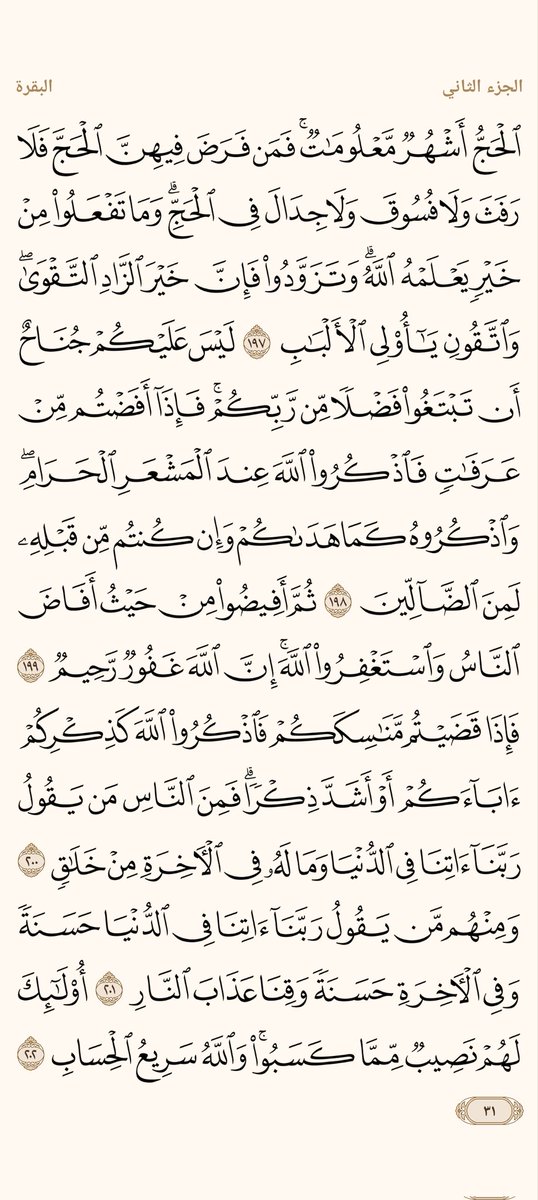 الجزء الثاني البقرة
ٱلۡحَجُّ أَشۡهُرٞ مَّعۡلُومَٰتٞۚ فَمَن فَرَضَ فِيهِنَّ ٱلۡحَجَّ فَلَا
رَفَثَ وَلَا فُسُوقَ وَلَا جِدَالَ فِي ٱلۡحَجِّۗ وَمَا تَفۡعَلُواْ مِنۡ
خَيۡرٖ يَعۡلَمۡهُ ٱللَّهُۗ وَتَزَوَّدُواْ فَإِنَّ خَيۡرَ ٱلزَّادِ ٱلتَّقۡوَىٰۖ
وَٱتَّقُونِ يَٰٓأُوْلِي ٱلۡأَلۡبَٰبِ ١٩٧ لَيۡسَ عَلَيۡكُمۡ جُنَاحٌ
أَن تَبۡتَغُواْ فَضۡلٗا مِّن رَّبِّكُمۡۚ فَإِذَآ أَفَضۡتُم مِّنۡ
عَرَفَٰتٖ فَٱذۡكُرُواْ ٱللَّهَ عِندَ ٱلۡمَشۡعَرِ ٱلۡحَرَامِۖ
وَٱذۡكُرُوهُ كَمَا هَدَىٰكُمۡ وَإِن كُنتُم مِّن قَبۡلِهِۦ
لَمِنَ ٱلضَّآلِّينَ ١٩٨ ثُمَّ أَفِيضُواْ مِنۡ حَيۡثُ أَفَاضَ
ٱلنَّاسُ وَٱسۡتَغۡفِرُواْ ٱللَّهَۚ إِنَّ ٱللَّهَ غَفُورٞ رَّحِيمٞ ١٩٩
فَإِذَا قَضَيۡتُم مَّنَٰسِكَكُمۡ فَٱذۡكُرُواْ ٱللَّهَ كَذِكۡرِكُمۡ
ءَابَآءَكُمۡ أَوۡ أَشَدَّ ذِكۡرٗاۗ فَمِنَ ٱلنَّاسِ مَن يَقُولُ
رَبَّنَآ ءَاتِنَا فِي ٱلدُّنۡيَا وَمَا لَهُۥ فِي ٱلۡأٓخِرَةِ مِنۡ خَلَٰقٖ ٢٠٠
وَمِنۡهُم مَّن يَقُولُ رَبَّنَآ ءَاتِنَا فِي ٱلدُّنۡيَا حَسَنَةٗ
وَفِي ٱلۡأٓخِرَةِ حَسَنَةٗ وَقِنَا عَذَابَ ٱلنَّارِ ٢٠١ أُوْلَٰٓئِكَ
لَهُمۡ نَصِيبٞ مِّمَّا كَسَبُواْۚ وَٱللَّهُ سَرِيعُ ٱلۡحِسَابِ ٢٠٢
٣١